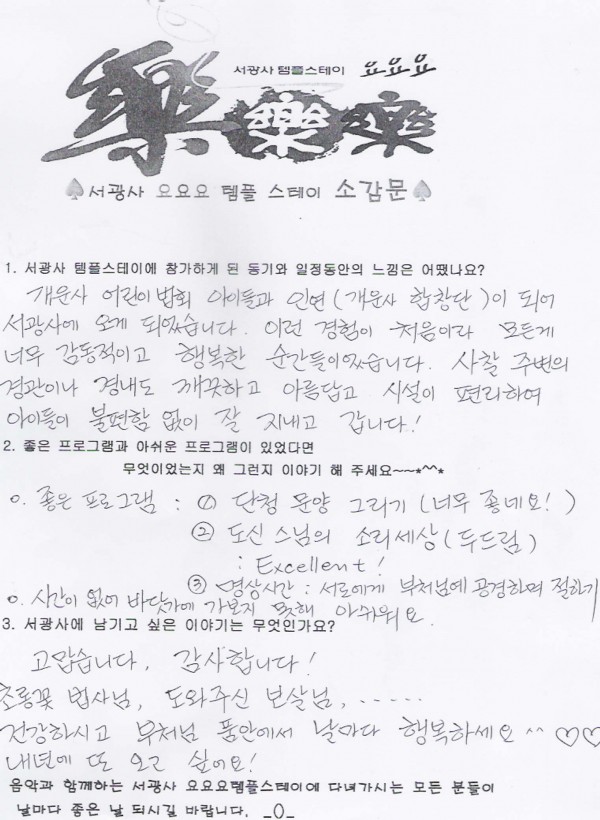 서광사 템플스테이 요요요
樂樂樂
♠서광사 요요요 템플 스테이 소감문♠
1. 서광사 템플스테이에 참가하게 된 동기와 일정동안의 느낌은 어땠나요?
개운사 어린이 법회 아이들과 인연(개운사 합창단)이 되어
서광사에 오게 되었습니다. 이런 경험이 처음이라 모든게
너무 감동적이고 행복한 순간들이었습니다. 사찰 주변의
경관이나 경내도 깨끗하고 아름답고 시설이 편리하여
아이들이 불편함 없이 잘 지내고 갑니다!
2. 좋은 프로그램과 아쉬운 프로그램이 있었다면
무엇이었는지 왜 그런지 이야기 해 주세요~~*^^*
o. 좋은 프로그램 : ① 단청 문양 그리기 (너무 좋네요!)
② 도신 스님의 소리세상(두드림)
: Excellent!
③ 명상시간 : 서로에게 부처님에 공경하며 절하기
o. 시간이 없어 바닷가에 가보지 못해 아쉬워요.
3. 서광사에 남기고 싶은 이야기는 무엇인가요?
고맙습니다, 감사합니다!
초롱꽃 법사님, 도와주신 보살님, ......
건강하시고 부처님 품안에서 날마다 행복하세요 ^^ ♡♡
내년에 또 오고 싶어요!
음악과 함께하는 서광사 요요요템플스테이에 다녀가시는 모든 분들이
날마다 좋은 날 되시길 바랍니다. _()_